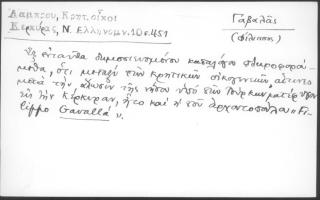 Λάμπρου, Κρητ. οἶκοι
Κερκύρας, Ν. Ἑλληνομν. 10 σ. 451
Γαβαλᾶς
(Φίλιππος)
Ἐκ ἐνταῦθα δημοσιευομένου καταλόγου πληροφορού-
μεθα, ὅτι μεταξὺ τῶν κρητικῶν οἰκογενειῶν, αἵτινες
μετὰ τὴν ἅλωσιν τῆς νήσου ὑπὸ τῶν Τούρκων κατέφυγον
εἰς τὴν Κέρκυραν, ἦτο καὶ ἡ τοῦ ἀρχοντοπούλου "Fi-
lippo Gavallà".